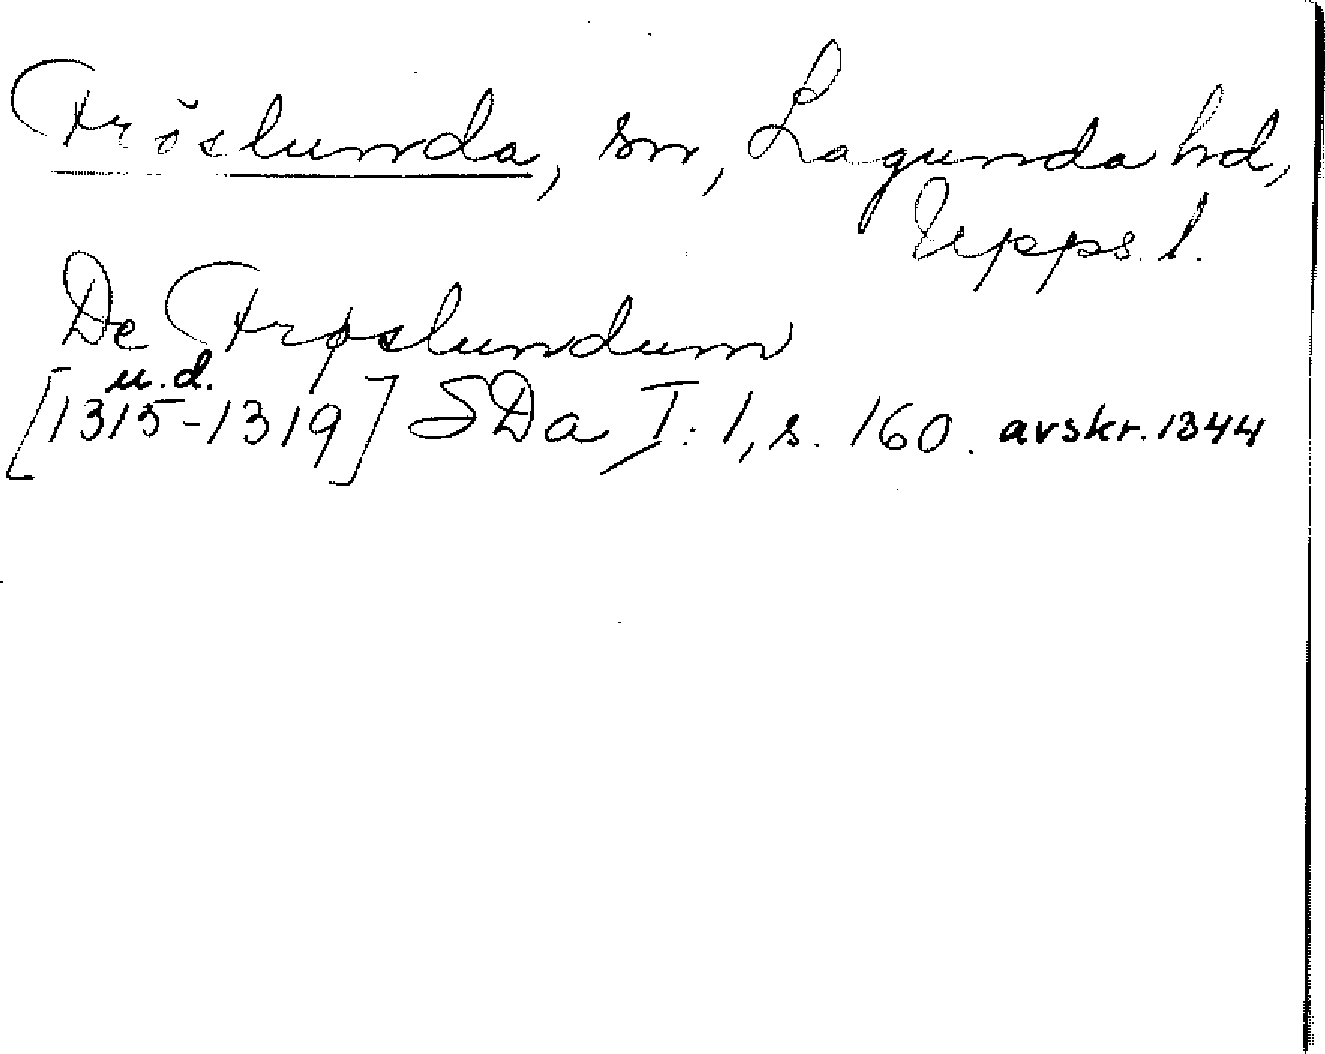 Fröslunda, sn, Lagunda hd,
Upps. l.
De Frøslundum
u.d.
[1315-1319] SDa I: 1, s. 160. avskr. 1344